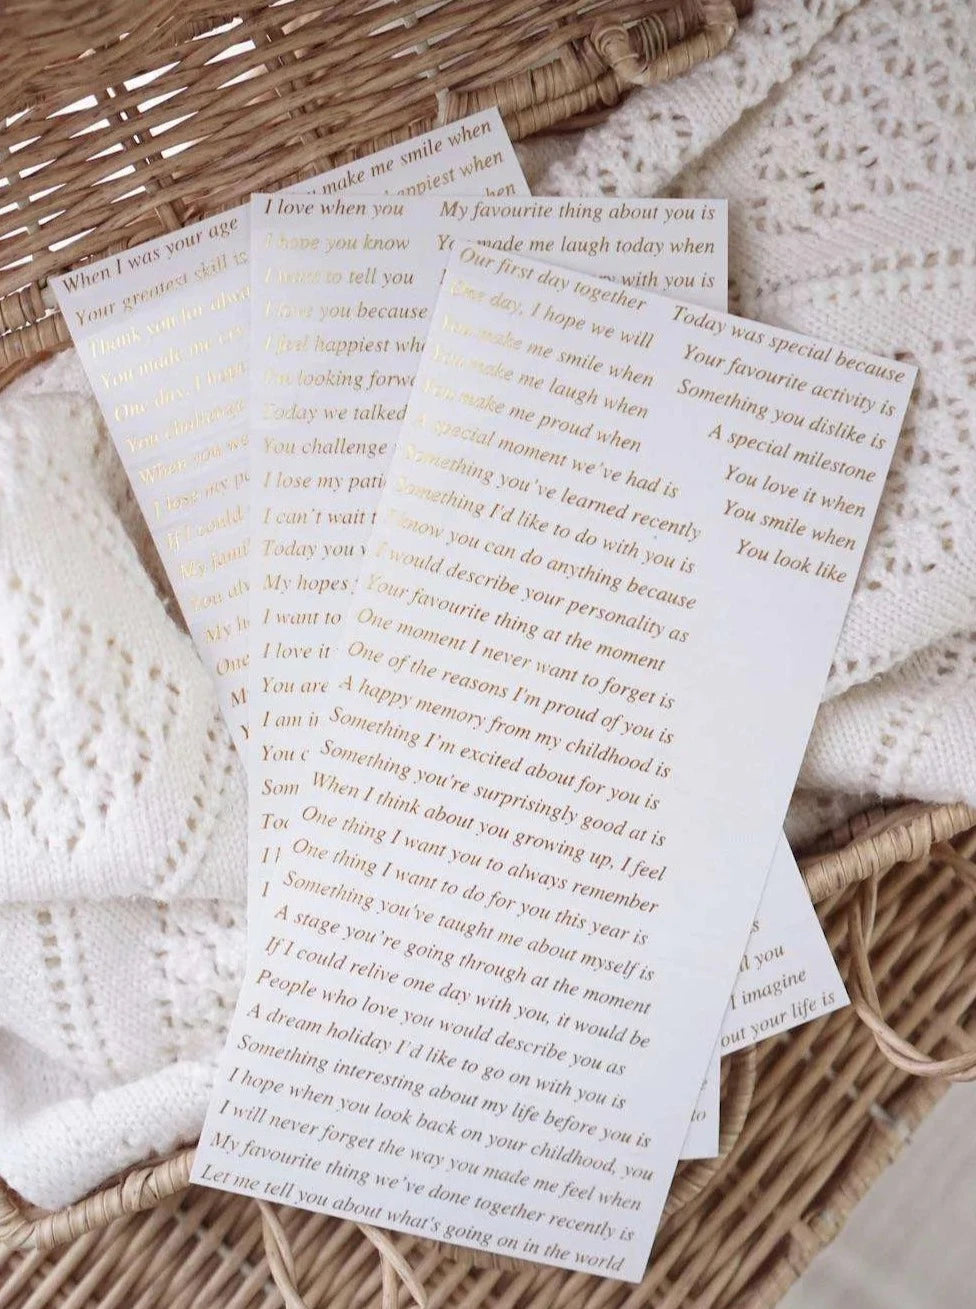 When I was your age
make me smile when
Your greatest skill is
happiest when
Thank you for alwa
when
You made me cry
One day, I hope
You
When you we
I lose my pa
If I could
My fami
You alw
My h
One
M
Y
I love when you
My favourite thing about you is
I hope you know
made me laugh today when
I want to tell you
with you is
I love you because
I feel happiest wh
I'm looking forwa
Today we talked
You challenge
I lose my pati
I can't wait t
Today you
My hopes
I want to
I love it
You are
I am i
You c
Som
Too
I
I
Our first day together
One day, I hope we will
You make me smile when
You make me laugh when
You make me proud when
A special moment we've had is
Something you've learned recently
Something I'd like to do with you is
I know you can do anything because
I would describe your personality as
Your favourite thing at the moment
One moment I never want to forget is
One of the reasons I'm proud of you is
A happy memory from my childhood is
Something I'm excited about for you is
Something you're surprisingly good at is
When I think about you growing up, I feel
One thing I want you to always remember
One thing I want to do for you this year is
Something you've taught me about myself is
A stage you're going through at the moment
If I could relive one day with you, it would be
People who love you would describe you as
A dream holiday I'd like to go on with you is
Something interesting about my life before you is
I hope when you look back on your childhood, you
I will never forget the way you made me feel when
My favourite thing we've done together recently is
Let me tell you about what's going on in the world
Today was special because
Your favourite activity is
Something you dislike is
A special milestone
You love it when
You smile when
You look like
you
I imagine
out your life is